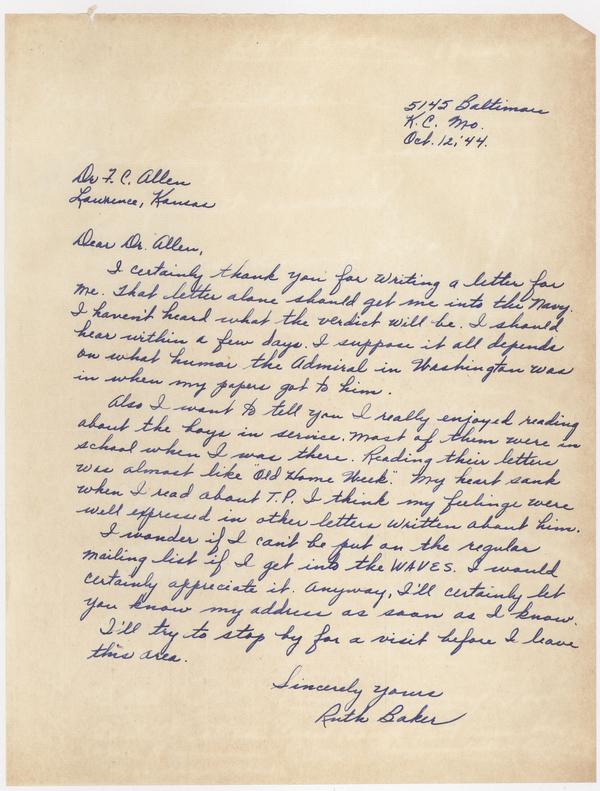 5145 Baltimore
K.C. Mo.
Oct. 12, '44.
Dr F. C. Allen
Lawrence, Kansas
Dear Dr. Allen,
I certainly thank you for writing a letter for
me. That letter alone should get me into the Navy.
I haven't heard what the verdict will be. I should
hear within a few days. I suppose it all depends
on what humor the Admiral in Washington was
in when my papers got to him.
Also I want to tell you I really enjoyed reading
about the boys in service. Most of them were in
school when I was there. Reading their letters
was almost like "Old Home Week". My heart sank
when I read about T.P. I think my feelings were
well expressed in other letters written about him.
I wonder if I can't be put on the regular
mailing list if I get into the WAVES. I would
certainly appreciate it. Anyway, I'll certainly let
you know my address as soon as I know.
I'll try to stop by for a visit before I leave
this area.
Sincerely yours
Ruth Baker